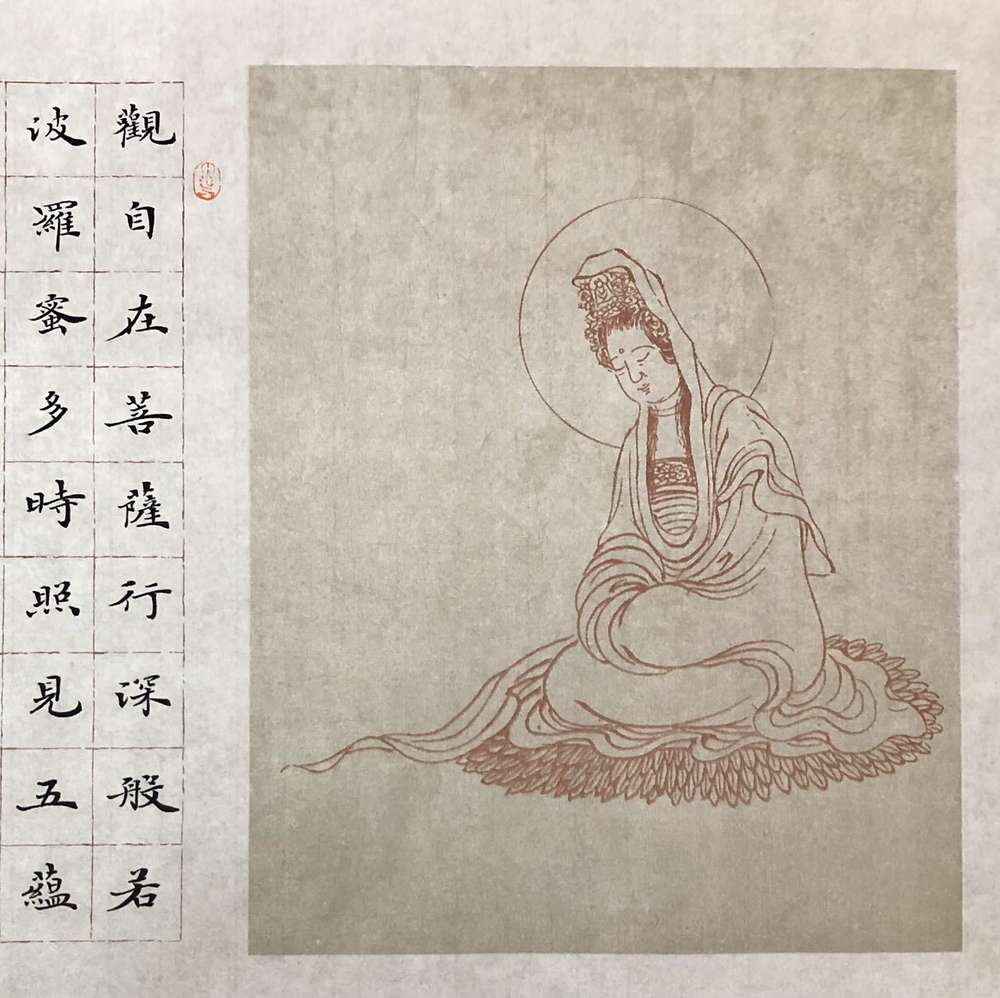 觀自在菩薩行深般若
波羅蜜多時照見五蘊